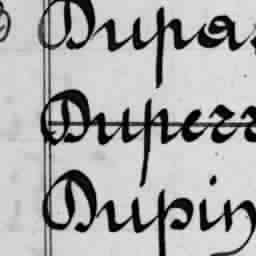 Dupas
Duperr
Dupin